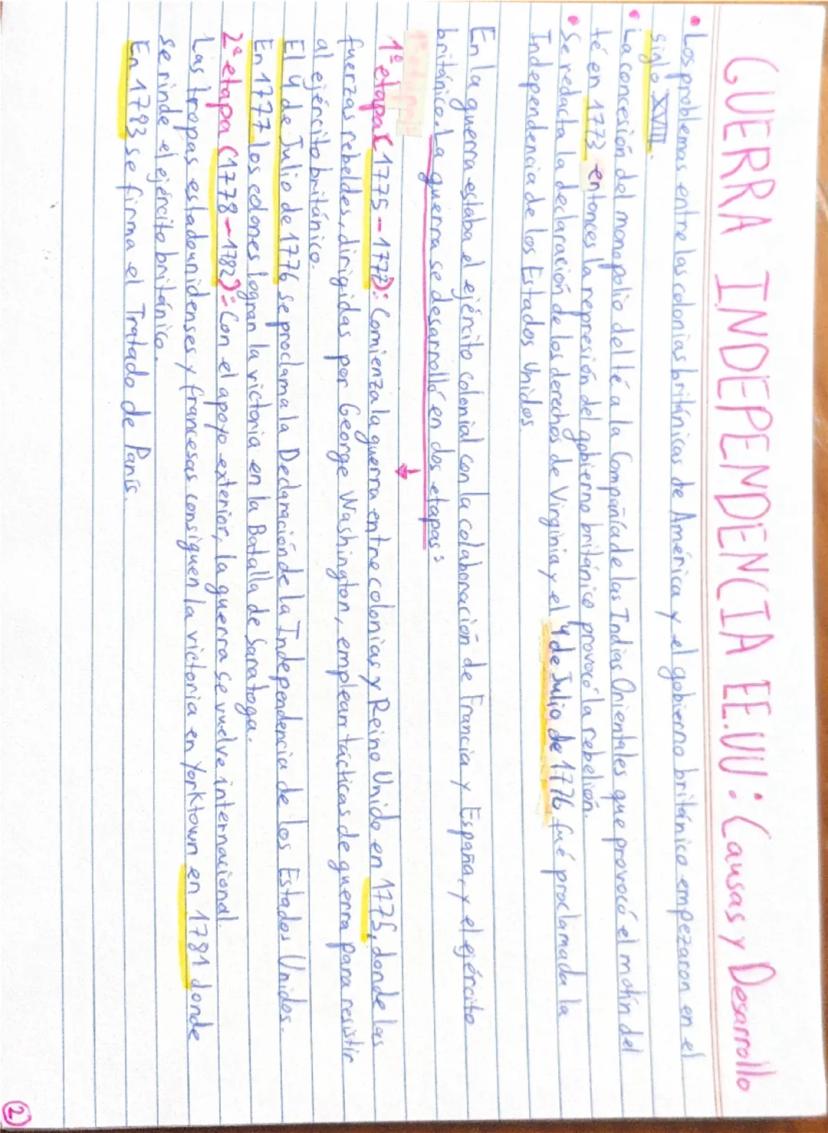 GUERRA INDEPENDENCIA EE.UU: Causas y Desarrollo
• Los problemas entre las colonias británicas de América y el gobierno británico empezaron en el
siglo XVIII.
• La concesión del monopolio del té a la Compañía de las Indias Orientales que provocó el motín del
té en 1773 entonces la represión del gobierno británico provocó la rebelión.
• Se redacta la declaración de los derechos de Virginia y el 4 de Julio de 1776 fué proclamada la
Independencia de los Estados Unidos
En la guerra estaba el ejército colonial con la colaboración de Francia y España, y el ejército
británico. La guerra se desarrolló en dos etapas:
1ª etapa (1775-1777): Comienza la guerra entre colonias y Reino Unido en 1775, donde las
fuerzas rebeldes, dirigidas por George Washington, emplean tácticas de guerra para resistir
al ejército británico.
El 4 de Julio de 1776 se proclama la Declaración de la Independencia de los Estados Unidos.
En 1777 los colones logran la victoria en la Batalla de Saratoga.
2ª etapa (1778-1782): Con el apoyo exterior, la guerra se vuelve internacional.
Las tropas estadounidenses y francesas consiguen la victoria en Yorktown en 1781 donde
se rinde el ejército británico.
En 1783 se firma el Tratado de París.
2